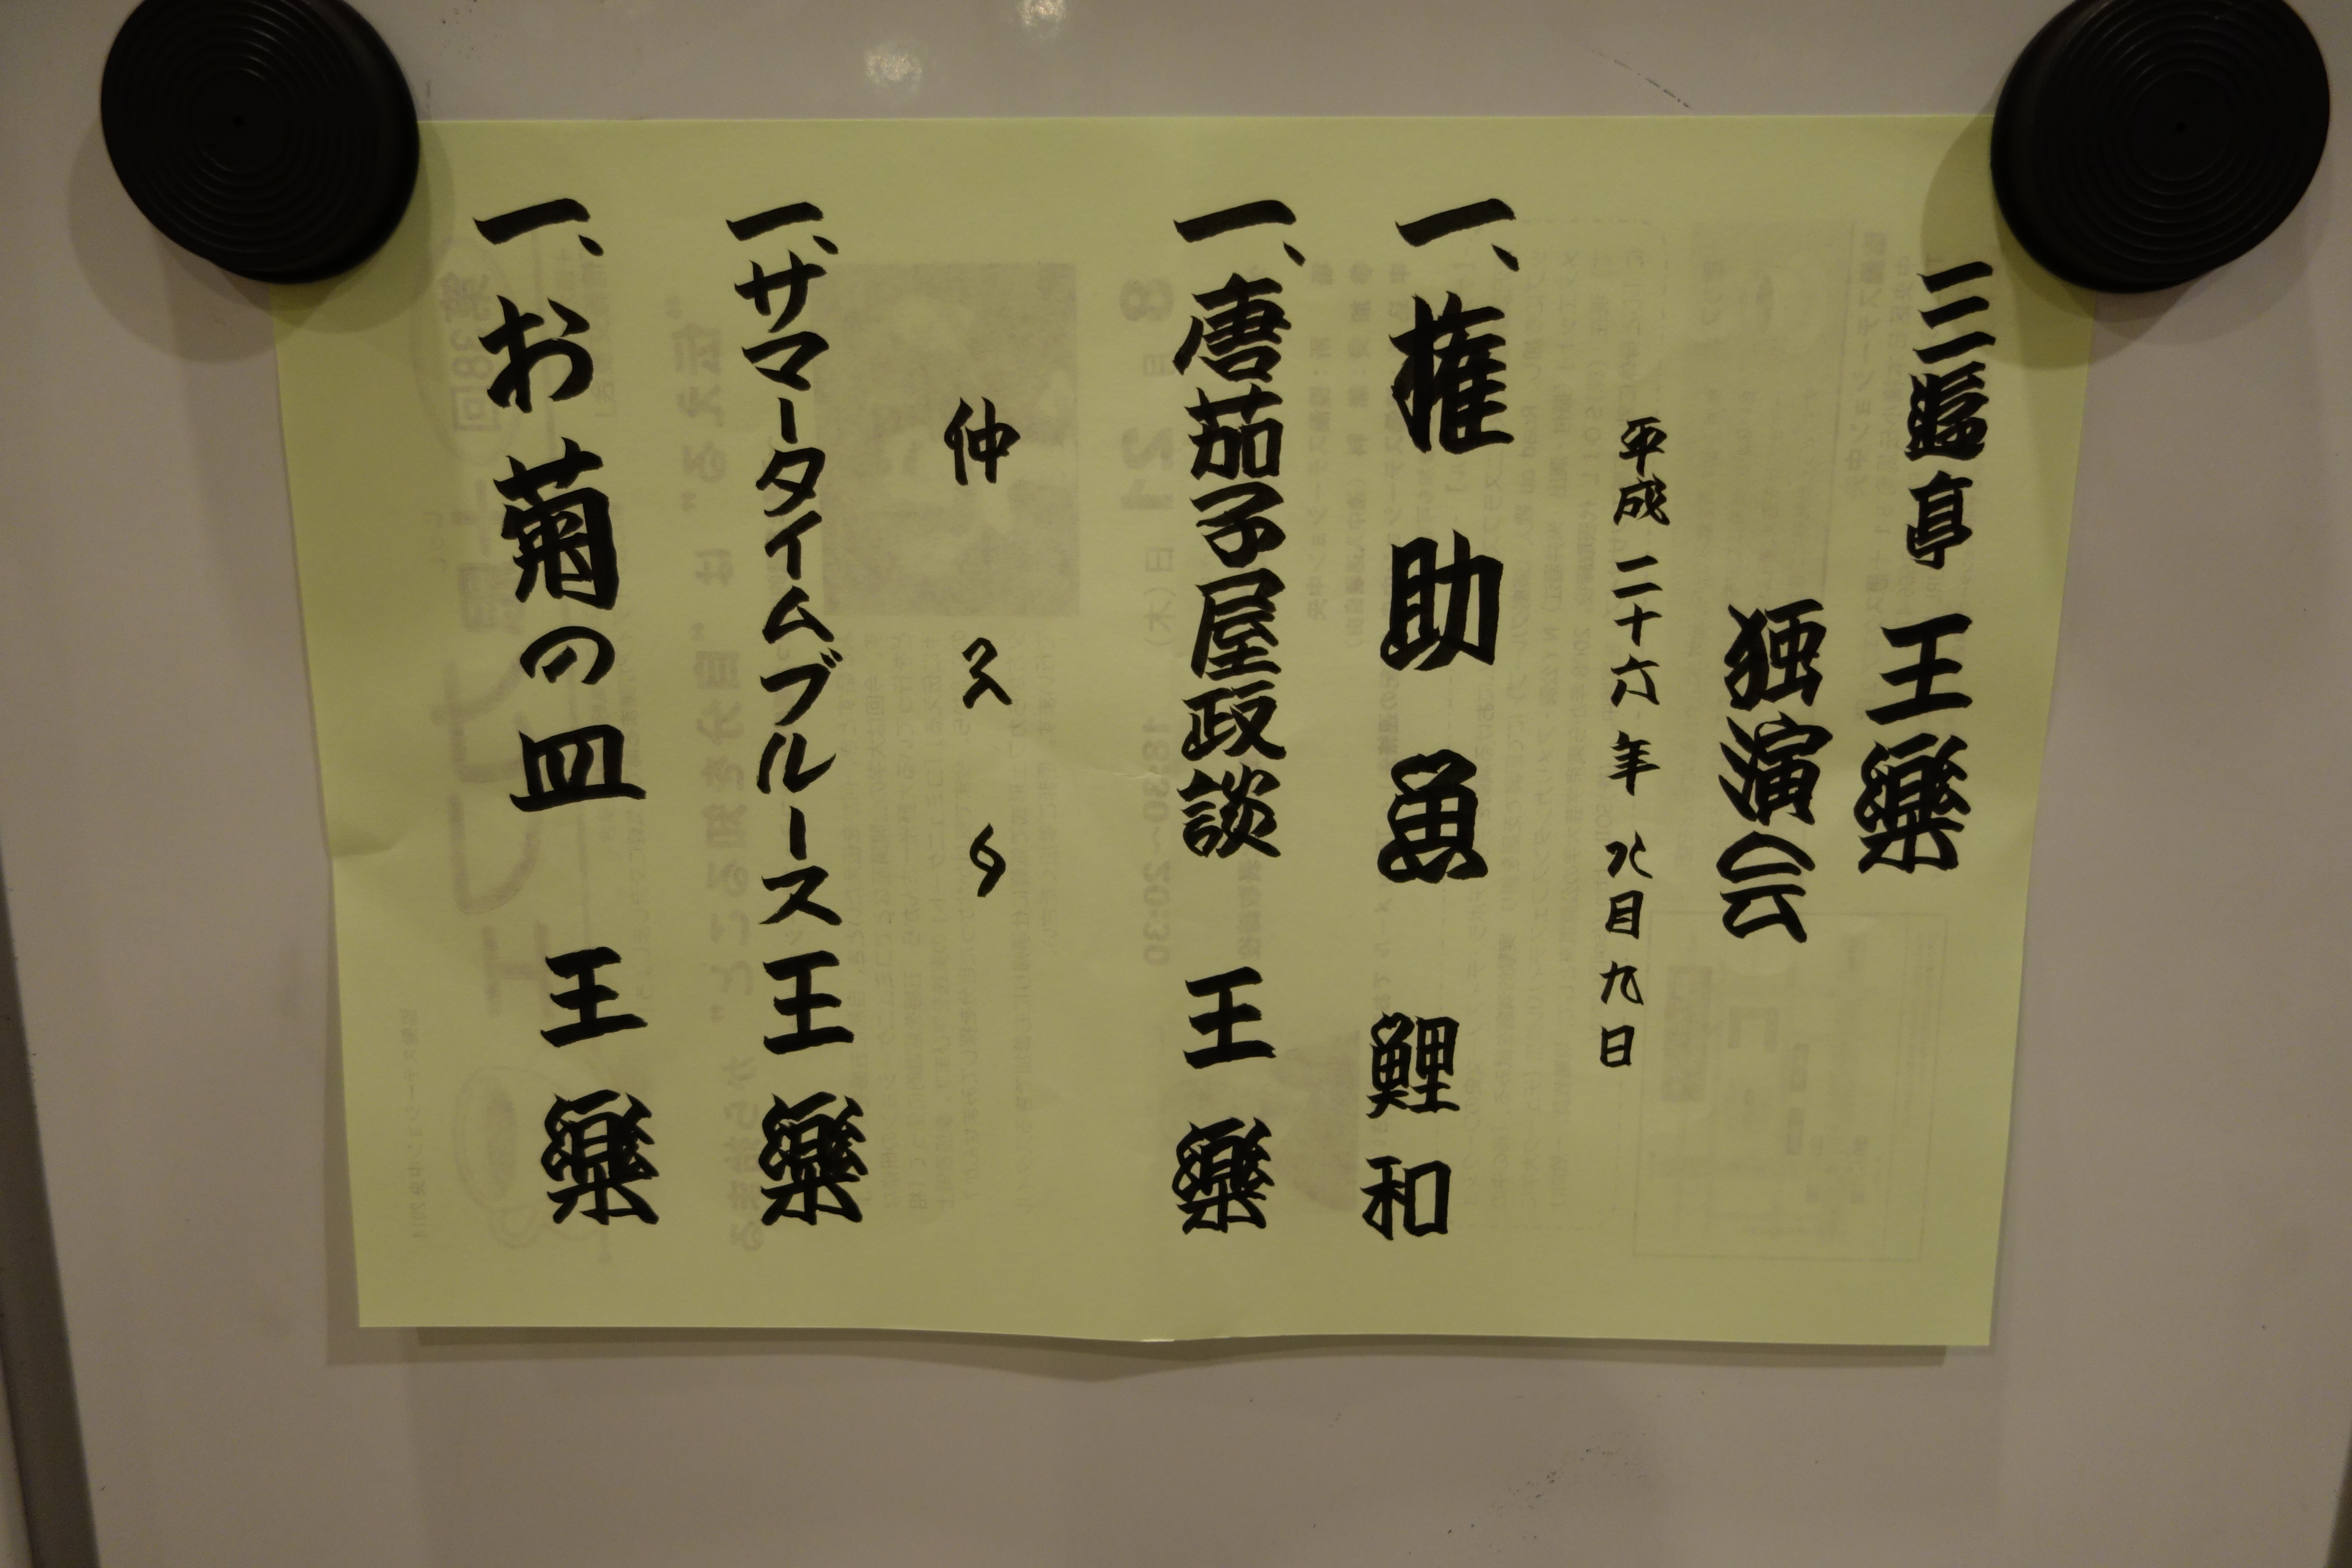 三遊亭 王樂
独演会
平成二十六年 八月九日
一、権助魚 鯉和
一、唐茄子屋政談 王樂
仲入り
一、サマータイムブルース 王樂
一、お菊の皿 王樂